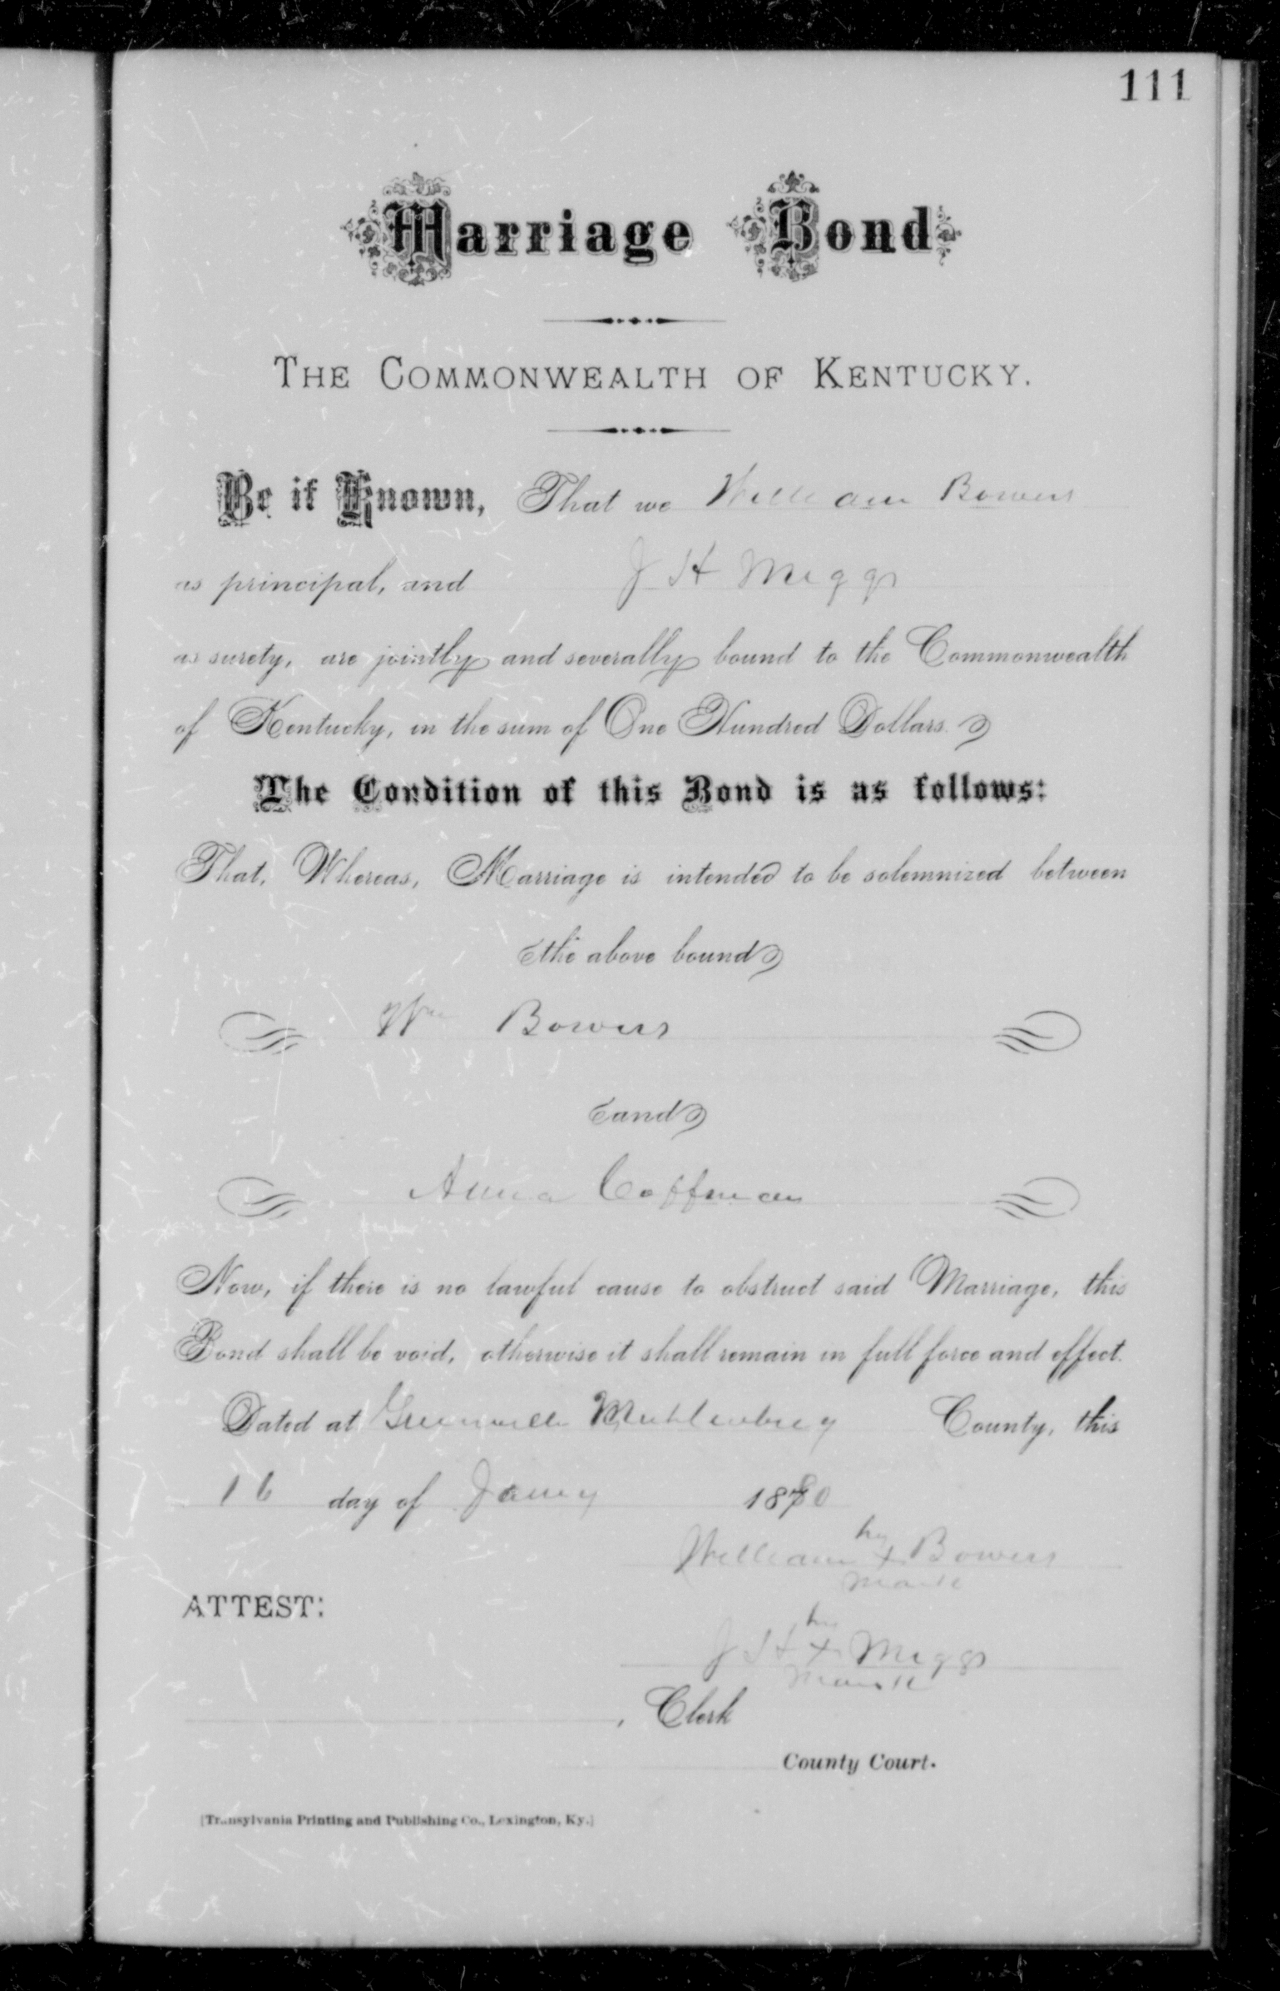 111
Marriage Bond
THE COMMONWEALTH OF KENTUCKY.
Be it Known, That we William Bowers
as principal, and J H Meggs
as surety, are jointly and severally bound to the Commonwealth
of Kentucky, in the sum of One Hundred Dollars.
The Condition of this Bond is as follows:
That, Whereas, Marriage is intended to be solemnized between
the above bound
Wm Bowers
and
Anna Coffman
Now, if there is no lawful cause to obstruct said Marriage, this
Bond shall be void, otherwise it shall remain in full force and effect.
Dated at Greenville Muhlenberg County, this
16 day of Jany 1880
his
William X Bowers
mark
ATTEST:
his
J H X Meggs
mark
, Clerk
County Court.
[Transylvania Printing and Publishing Co., Lexington, Ky.]